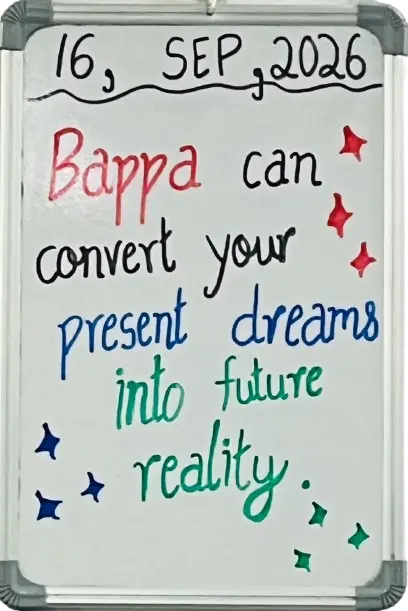 16, SEP, 2026
Bappa can
convert your
present dreams
into future
reality.